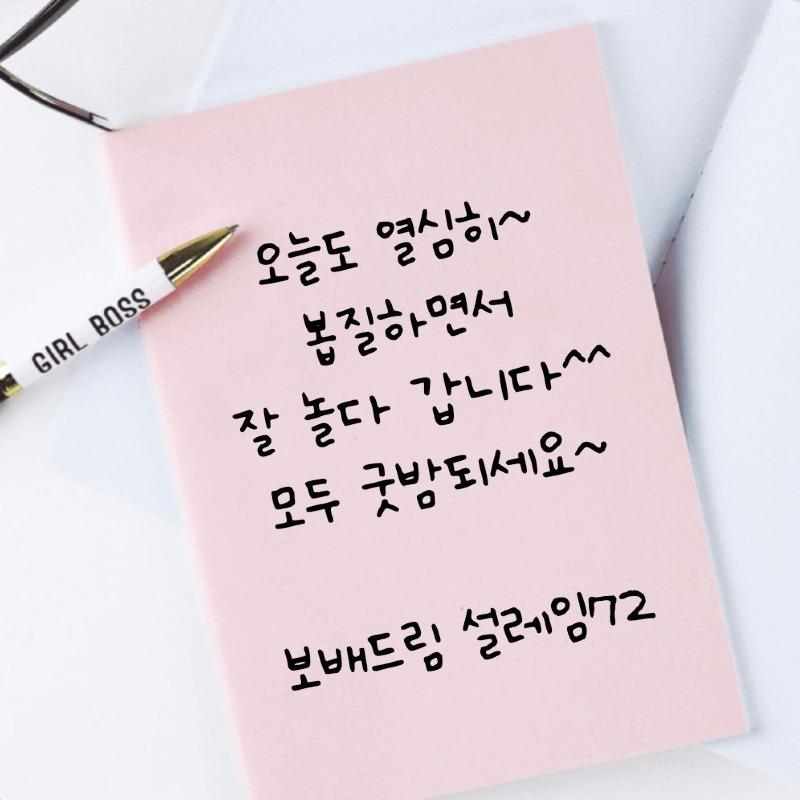 GIRL BOSS
오늘도 열심히~
봅질하면서
잘 놀다 갑니다^^
모두 굿밤되세요~
보배드림 설레임72